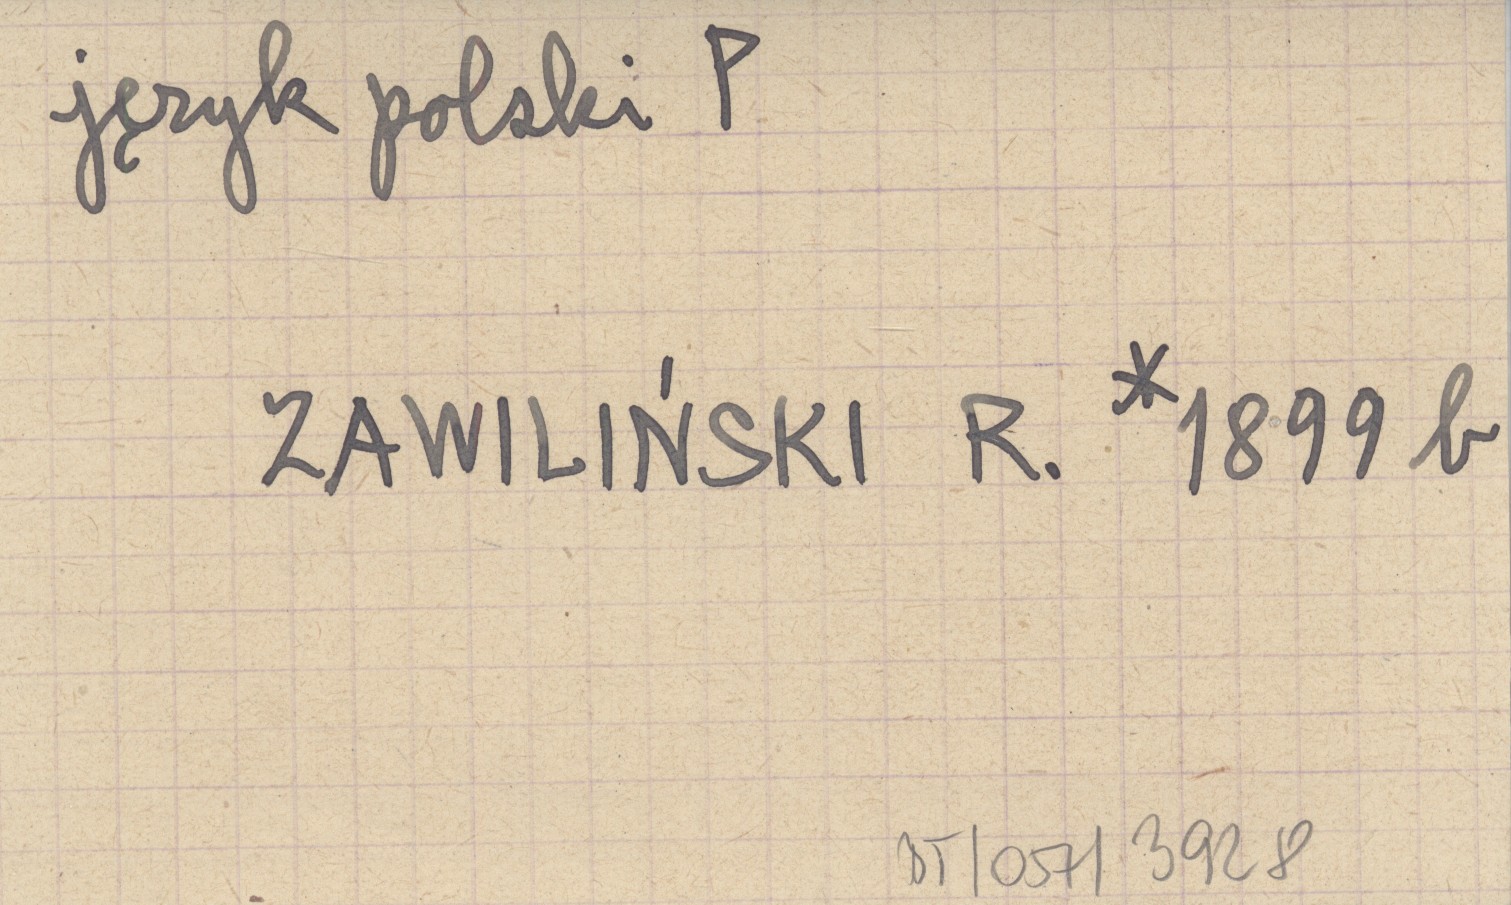 język polski P
ZAWILIŃSKI R. *1899 b
BT/057/3928